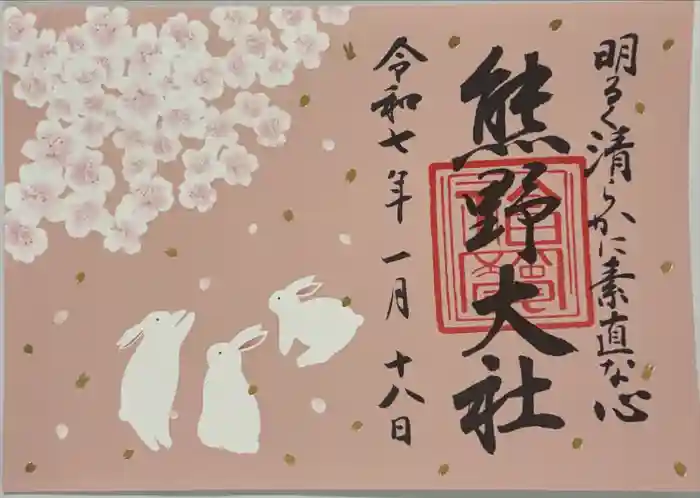 明るく清らかに素直な心
熊野大社
令和七年 一月 十八日